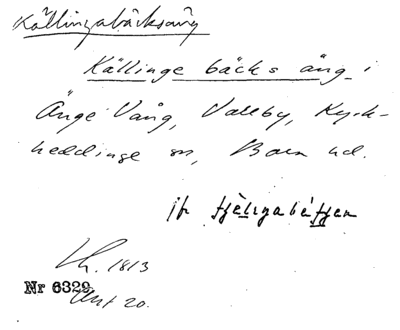 Källingabäcksäng
Källinge bäcks äng i
Änge Vång, Vallby, Kyrk-
heddinge sn, Bara hd.
jfr
Lh. 1813
Nr 6329
Akt 20.